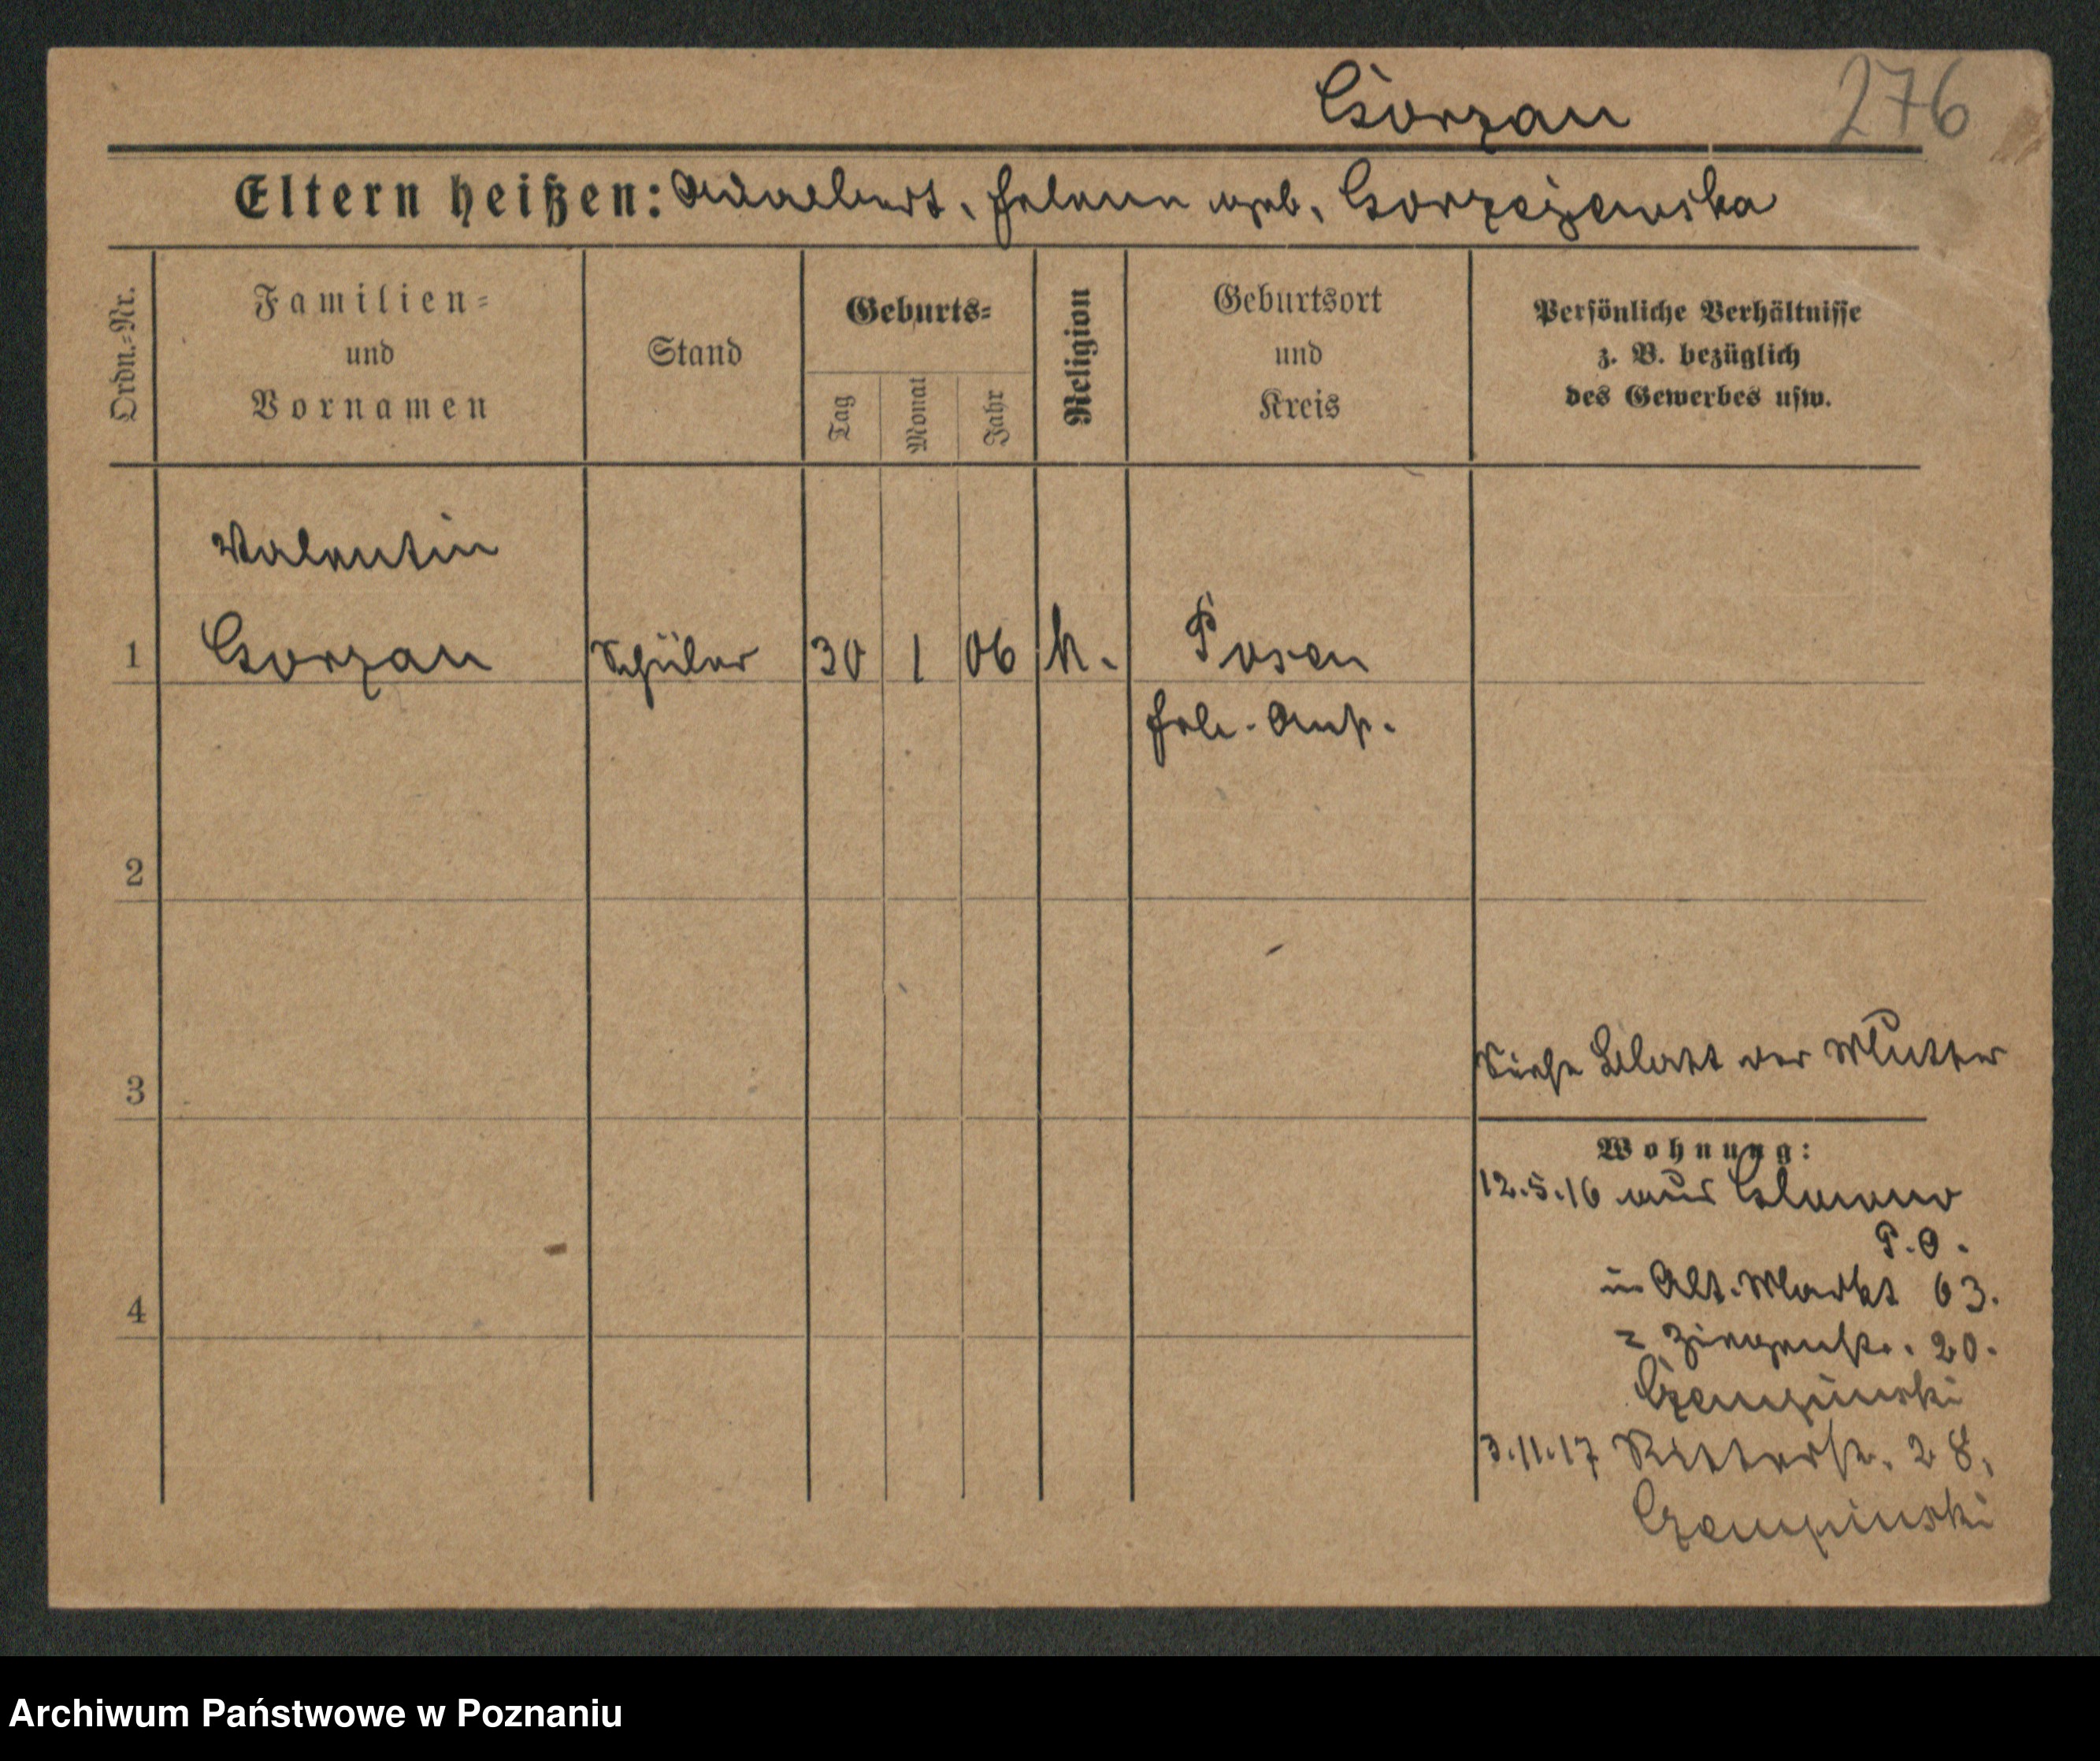 Gorzan 276
Eltern heißen: Adalbert, Helene geb. Gorzejewska
Ordn.-Nr.
Familien-
und
Vornamen
Stand
Geburts-
Tag
Monat
Jahr
Religion
Geburtsort
und
Kreis
Persönliche Verhältnisse
z. B. bezüglich
des Gewerbes usw.
Valentin
1 Gorzan Schüler 30 1 06 k. Posen
2
3
Siehe Blatt der Mutter
Wohnung:
12.5.16 aus
P.O.
in Alt. Markt 63.
4
= Ziegenstr. 20.
Czempinski
3.11.17 Ritterstr. 28,
Czempinski
Archiwum Państwowe w Poznaniu